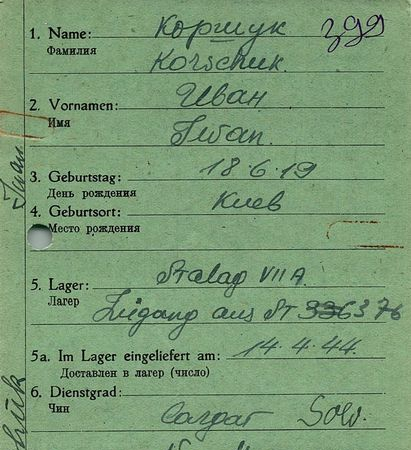 399
1. Name: Коршук
Фамилия Korschuk.
2. Vornamen: Иван
Имя Iwan.
3. Geburtstag: 18·6·19
День рождения
4. Geburtsort: Киев
Место рождения
5. Lager: Stalag VII A.
Лагер Zugang aus St 336 376
5a. Im Lager eingeliefert am: 14·4·44.
Доставлен в лагер (число)
6. Dienstgrad:
Чин Солдат Sold.
Iwan